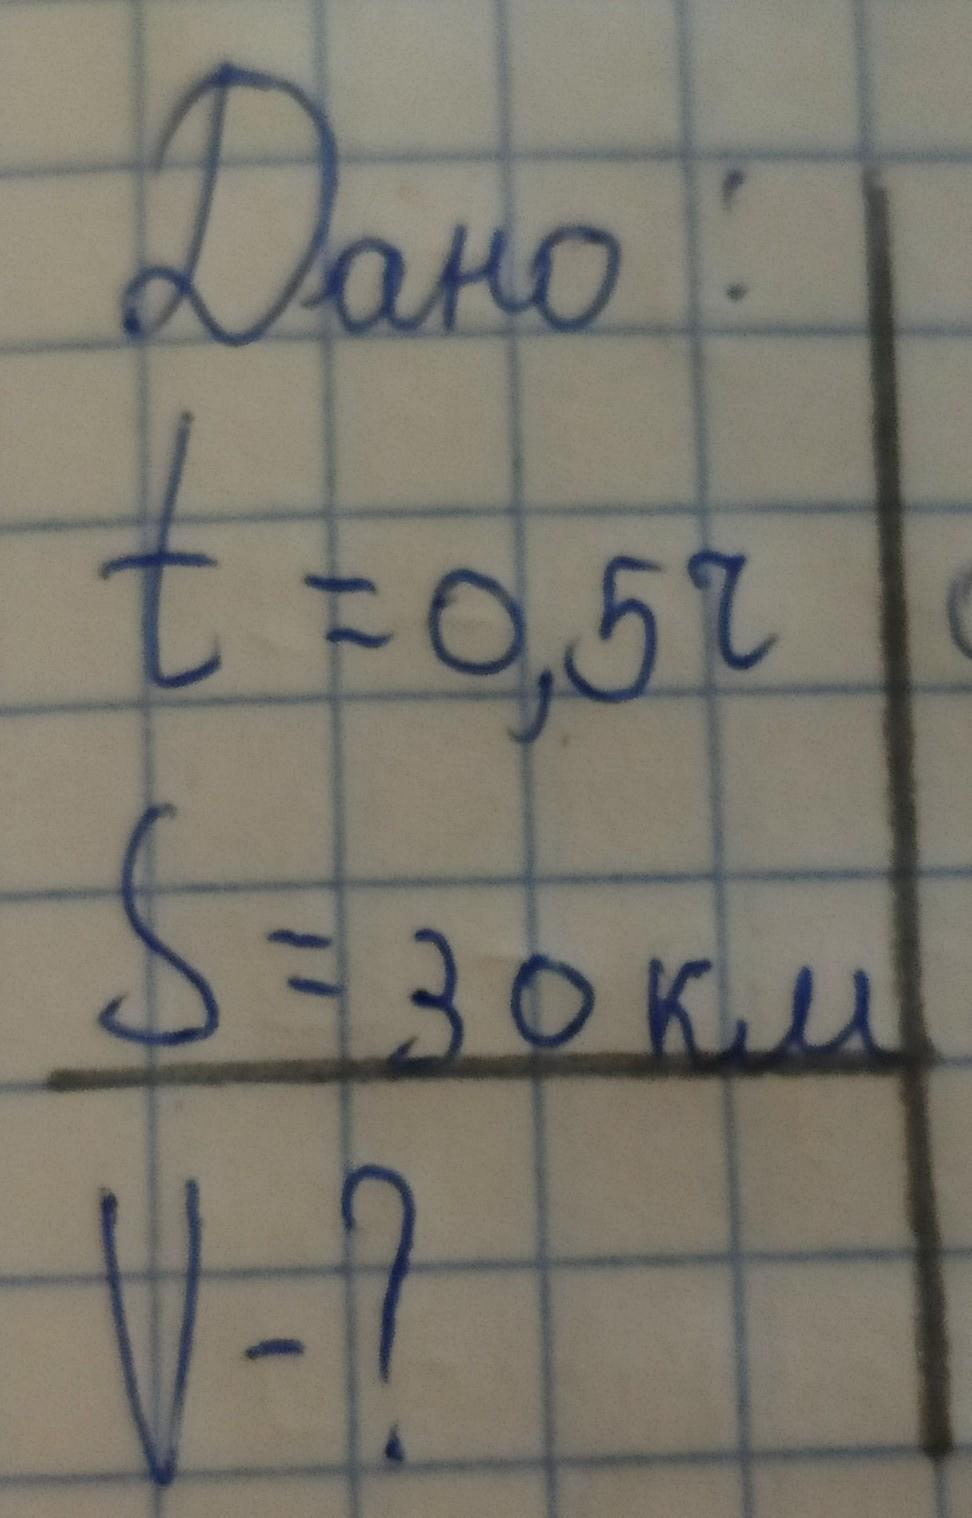 Дано:
t = 0,5ч
S = 30 км
V - ?